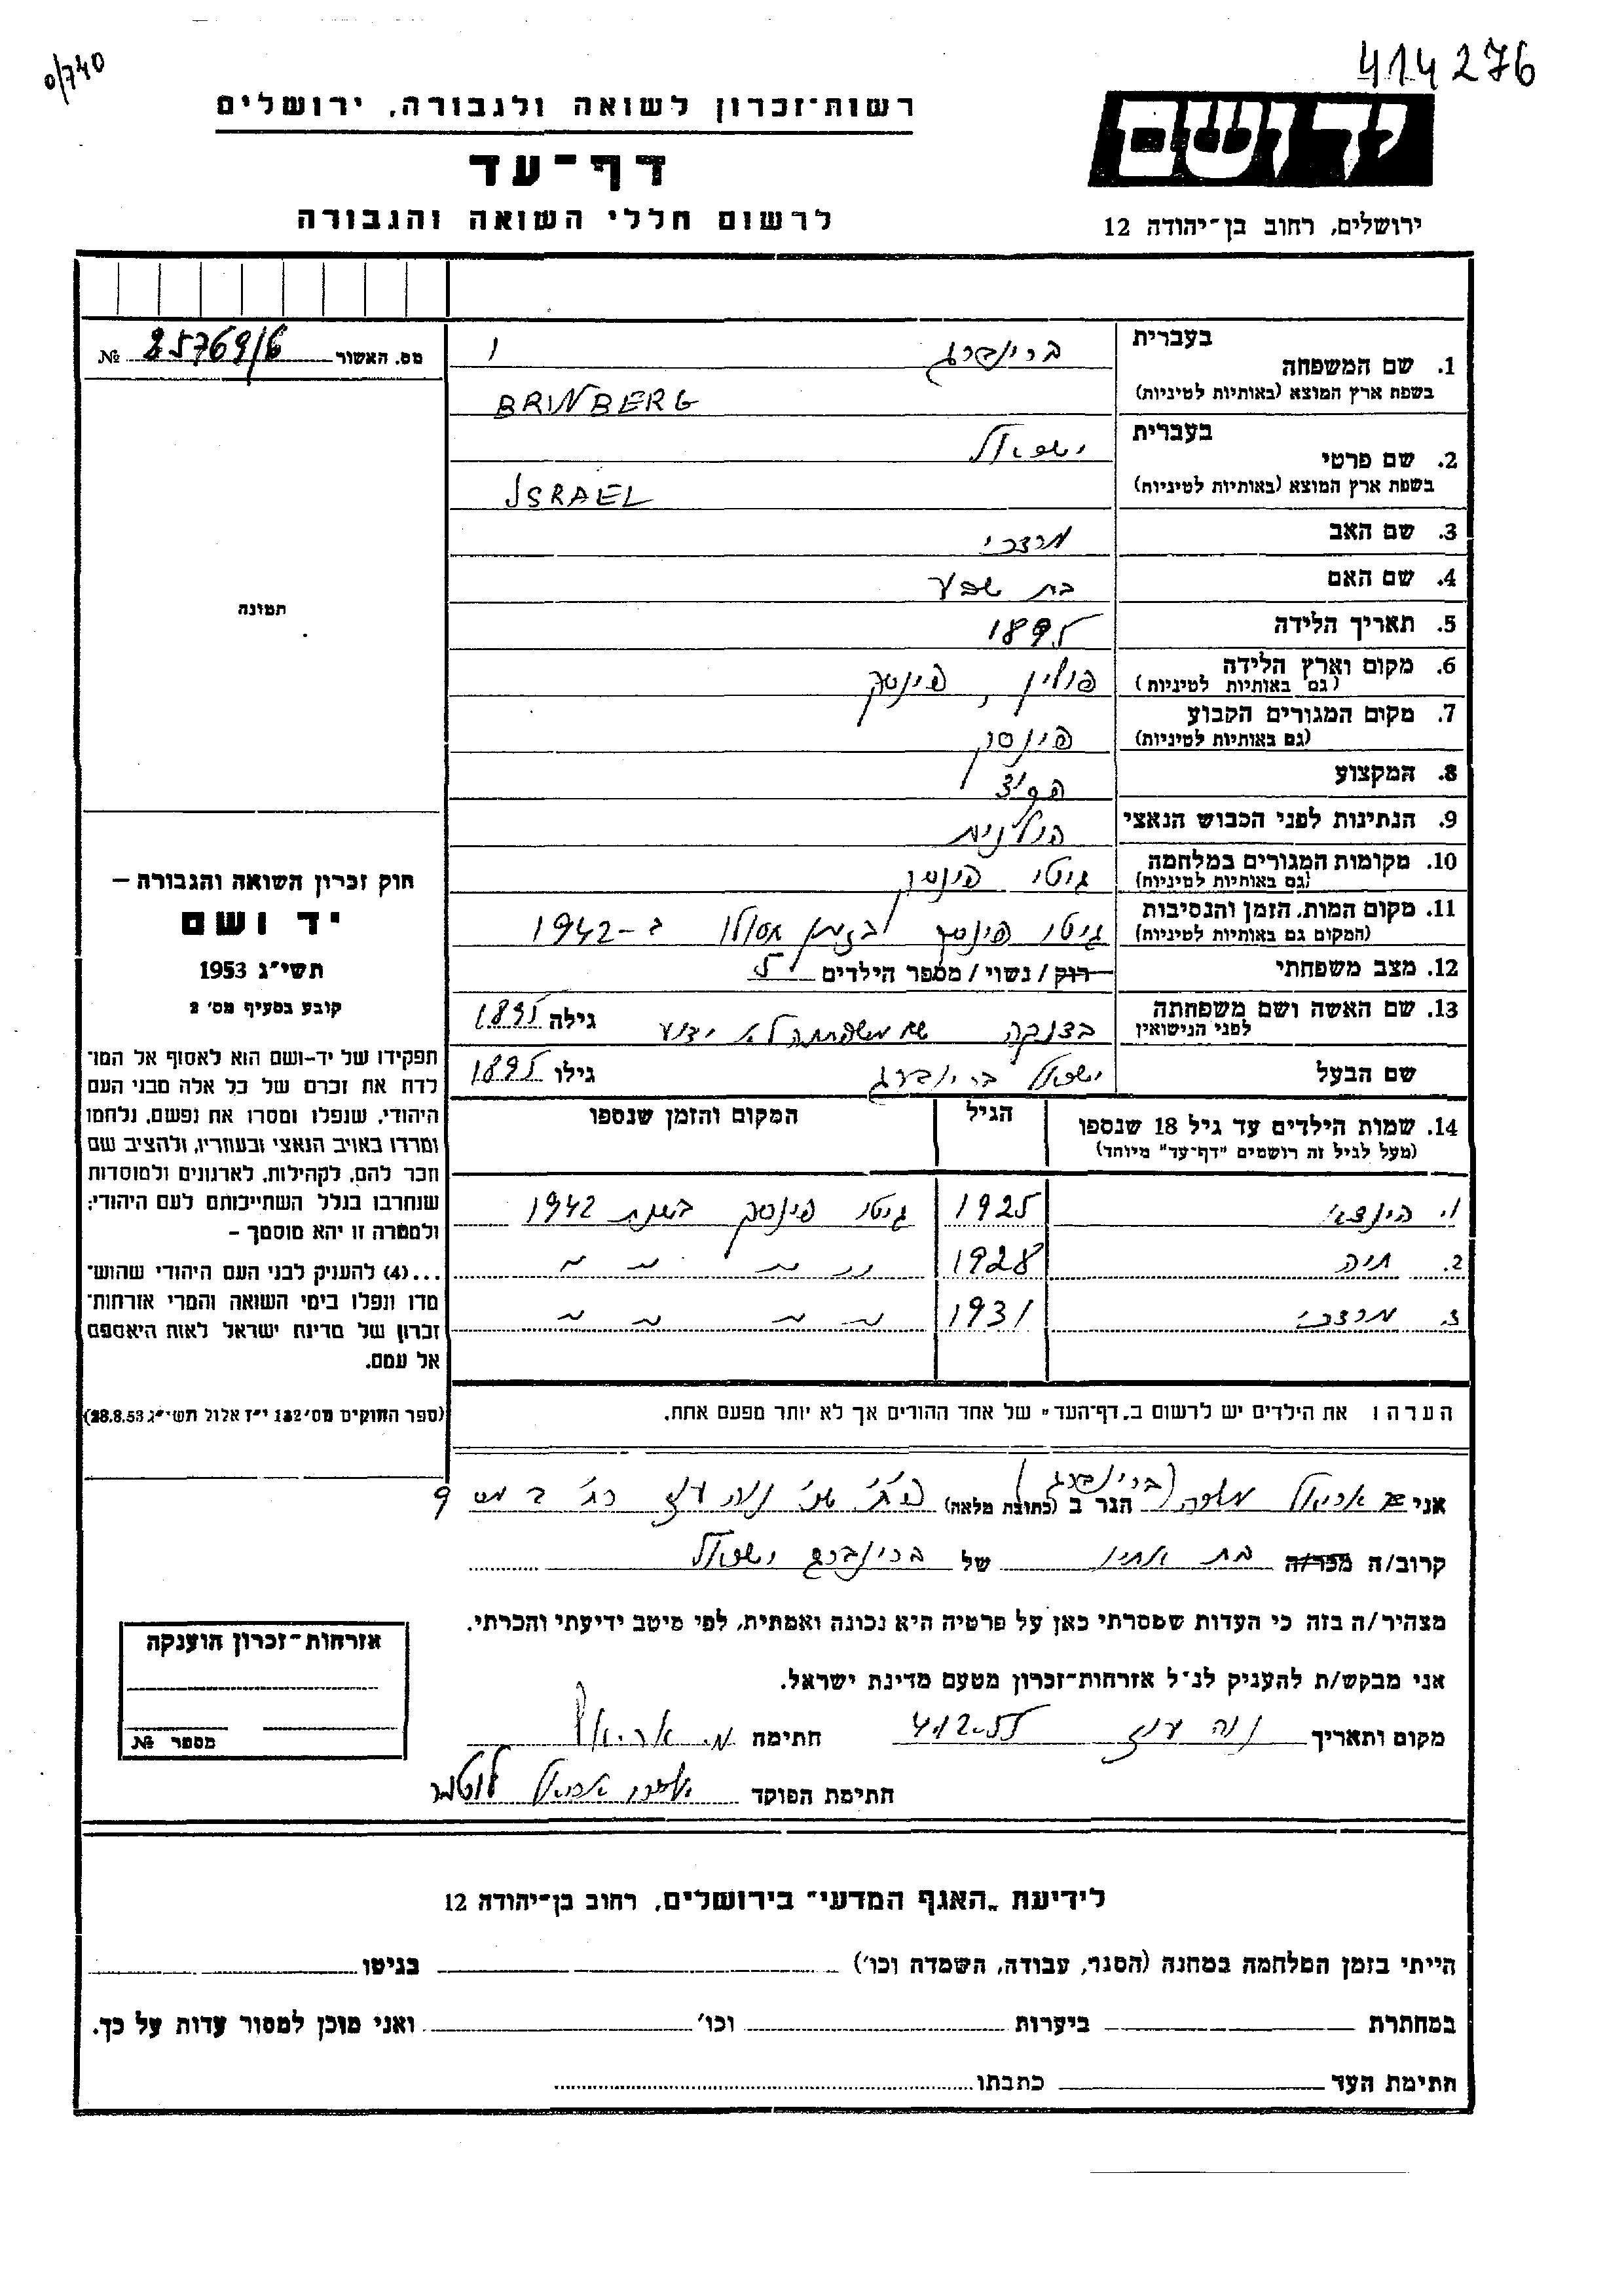 414276
0/740
רשות־זכרון לשואה ולגבורה, ירושלים
דף־עד
לרשום חללי השואה והגבורה
יד ושם
ירושלים, רחוב בן־יהודה 12
מס. האשור 25769/6 №
תמונה
בעברית
1. שם המשפחה ברינברג
בשפת ארץ המוצא (באותיות לטיניות) BRINBERG
בעברית
2. שם פרטי ישראל
בשפת ארץ המוצא (באותיות לטיניות) ISRAEL
3. שם האב מרדכי
4. שם האם בת שבע
5. תאריך הלידה 1895
6. מקום וארץ הלידה פולין, פינסק
(גם באותיות לטיניות)
7. מקום המגורים הקבוע פינסק
(גם באותיות לטיניות)
8. המקצוע
9. הנתינות לפני הכבוש הנאצי פולנית
10. מקומות המגורים במלחמה גיטו פינסק
(גם באותיות לטיניות)
11. מקום המות, הזמן והנסיבות גיטו פינסק בזמן חסולו ב-1942
(המקום גם באותיות לטיניות)
12. מצב משפחתי רווק / נשוי / מספר הילדים 5
13. שם האשה ושם משפחתה שם משפחתה לא ידוע גילה 1895
לפני הנישואין
שם הבעל ישראל ברינברג גילו 1895
14. שמות הילדים עד גיל 18 שנספו הגיל המקום והזמן שנספו
(מעל לגיל זה רושמים "דף־עד" מיוחד)
1. 1925 גיטו פינסק בשנת 1942
2. חיה 1928 " " " "
3. מרדכי 1931 " " " "
הערה: את הילדים יש לרשום ב„דף־העד" של אחד ההורים אך לא יותר מפעם אחת.
חוק זכרון השואה והגבורה –
יד ושם
תשי"ג 1953
קובע בסעיף מס' 2
תפקידו של יד-ושם הוא לאסוף אל המו־
לדת את זכרם של כל אלה מבני העם
היהודי, שנפלו ומסרו את נפשם, נלחמו
ומרדו באויב הנאצי ובעוזריו, ולהציב שם
וזכר להם, לקהילות, לארגונים ולמוסדות
שנחרבו בגלל השתייכותם לעם היהודי;
ולמטרה זו יהא מוסמך –
...(4) להעניק לבני העם היהודי שהוש־
מדו ונפלו בימי השואה והמרי אזרחות־
זכרון של מדינת ישראל לאות היאספם
אל עמם.
(ספר החוקים מס' 132 י"ז אלול תשי"ג 28.8.53)
אני אריאל משה (ברינברג) הגר ב (כתובת מלאה) פ"ת שכ' נוה עוז רח' ב מס 9
קרוב/ה מכר/ה בת אחיו של ברינברג ישראל
מצהיר/ה בזה כי העדות שמסרתי כאן על פרטיה היא נכונה ואמתית, לפי מיטב ידיעתי והכרתי.
אני מבקש/ת להעניק לנ"ל אזרחות־זכרון מטעם מדינת ישראל.
מקום ותאריך נוה עוז 4.12.55 חתימה מ. אריאל
חתימת הפוקד
אזרחות־זכרון הוענקה
מספר №
לידיעת „האגף המדעי" בירושלים, רחוב בן־יהודה 12
הייתי בזמן המלחמה במחנה (הסגר, עבודה, השמדה וכו') בגיטו
במחתרת ביערות וכו' ואני מוכן למסור עדות על כך.
חתימת העד כתבתו